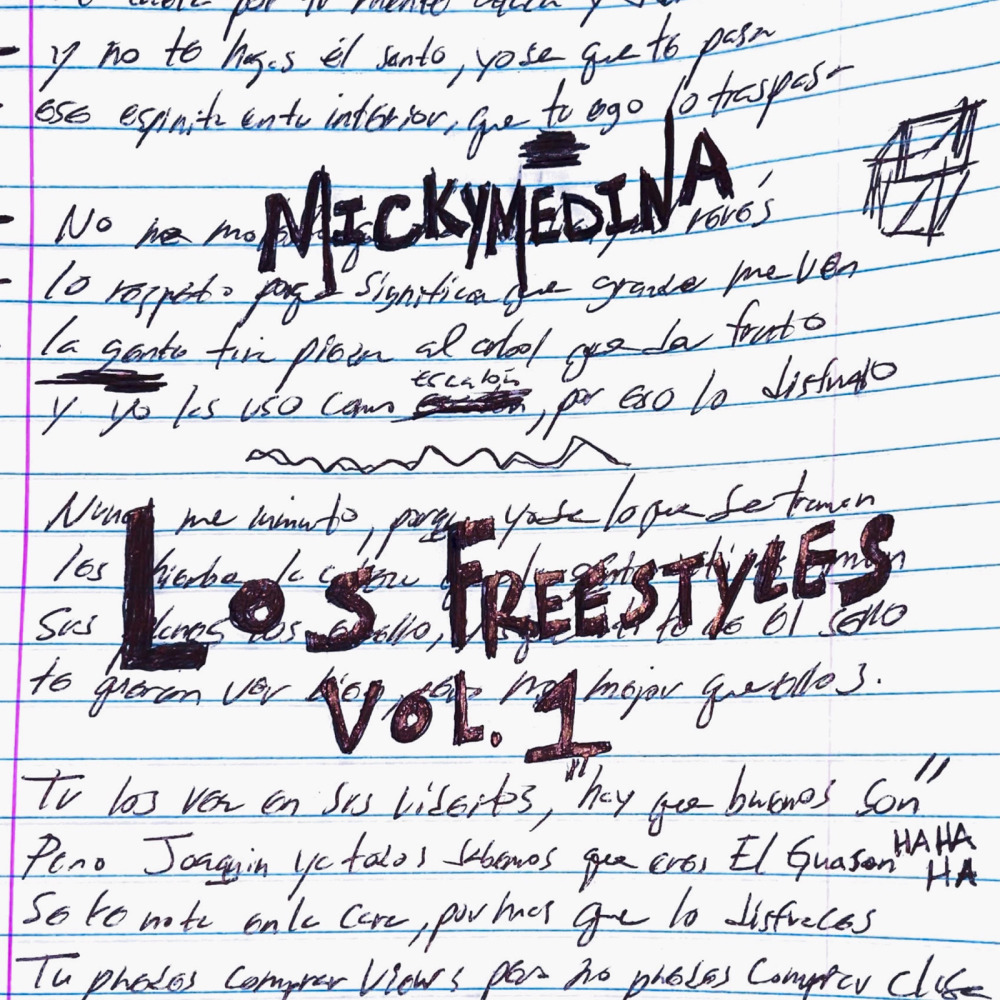 y no te hagas él santo, yo se que te pasa
ese espiritu en tu interior, que tu ego lo traspasa
MICKYMEDINA
No me revés
lo respeto porque significa que grande me ven
la gente tira piedra al arbol que da fruto
y yo los uso como escalón, por eso lo disfruto
Nunca me inmuto, porque yo se lo que se traman
les hierbe la
LOS FREESTYLES
Sus planes el sello
te quieran ver bien, pero no mejor que ellos.
VOL. 1
Tu los ves en sus videitos, "hay que buenos son"
Pero Joaquin ya todos sabemos que eres El Guason HAHA
HA
Se te nota en la cara, por mas que lo disfraces
Tu puedes comprar views pero no puedes comprar clase